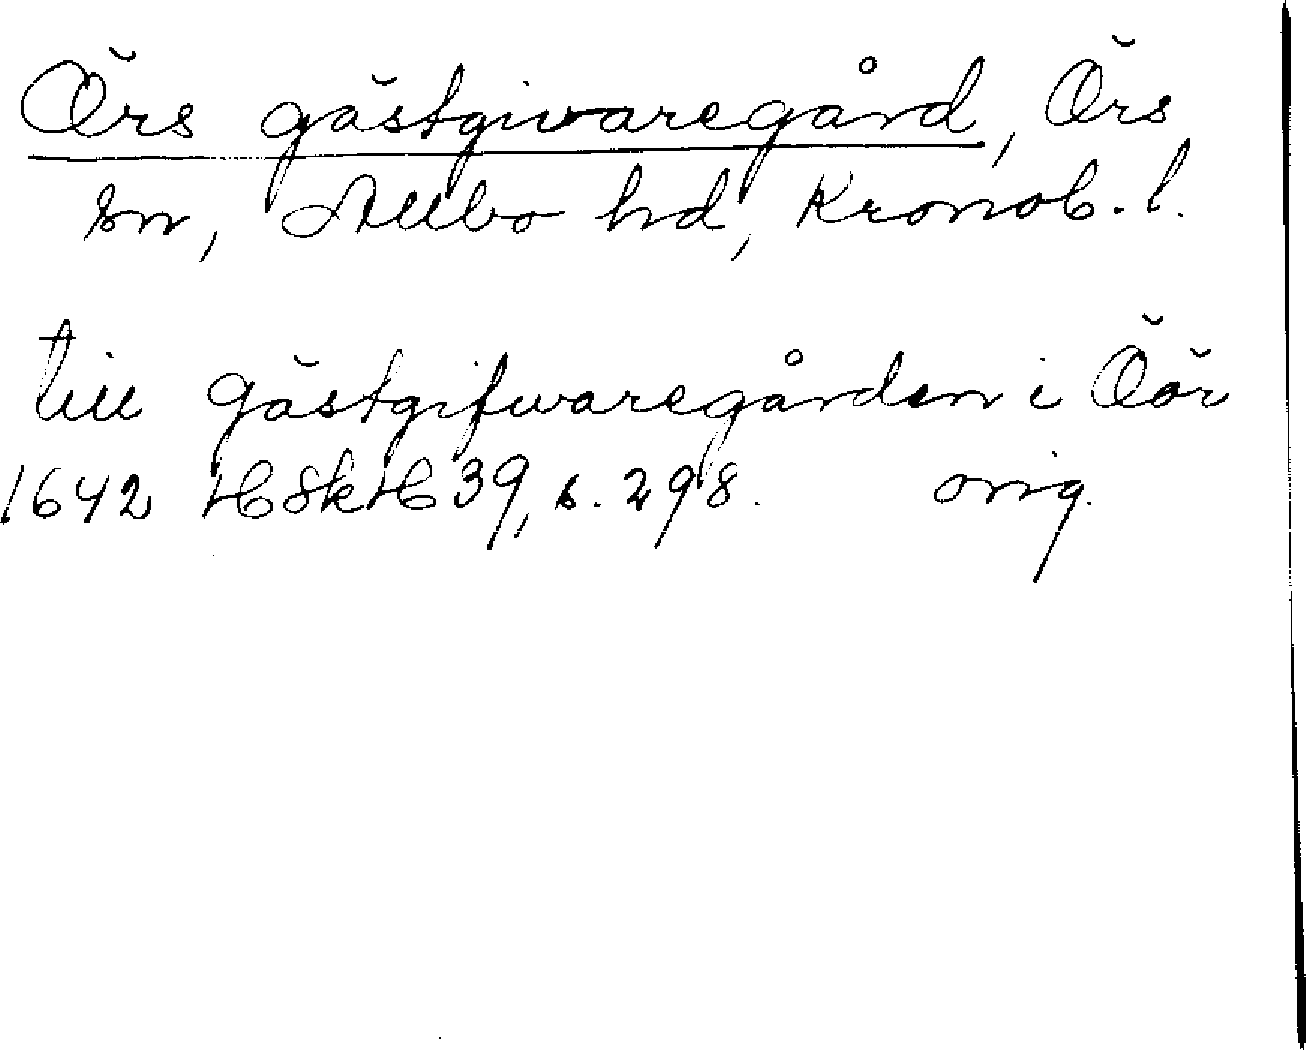 Örs gästgivaregård, Örs
sn, Allbo hd, Kronob. l.
till gästgifwaregården i Öör
1642 HSkH 39, s. 298. orig.